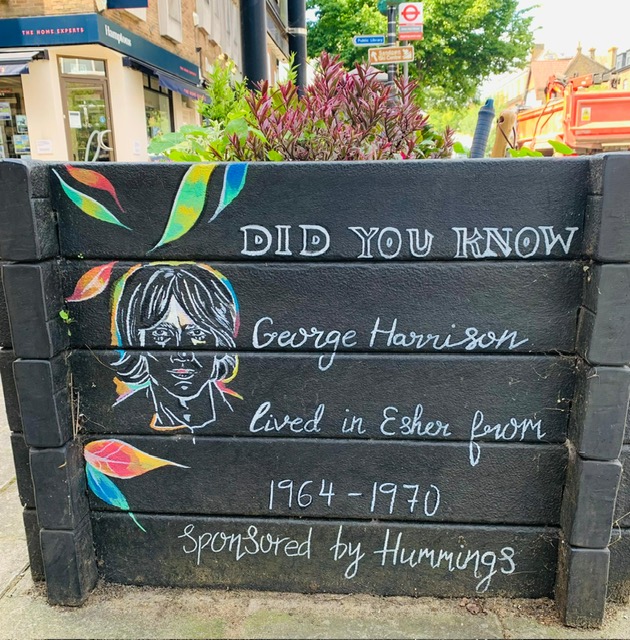 THE HOME EXPERTS
Hamptons
Public Library
DID YOU KNOW
George Harrison
lived in Esher from
1964-1970
Sponsored by Hummings